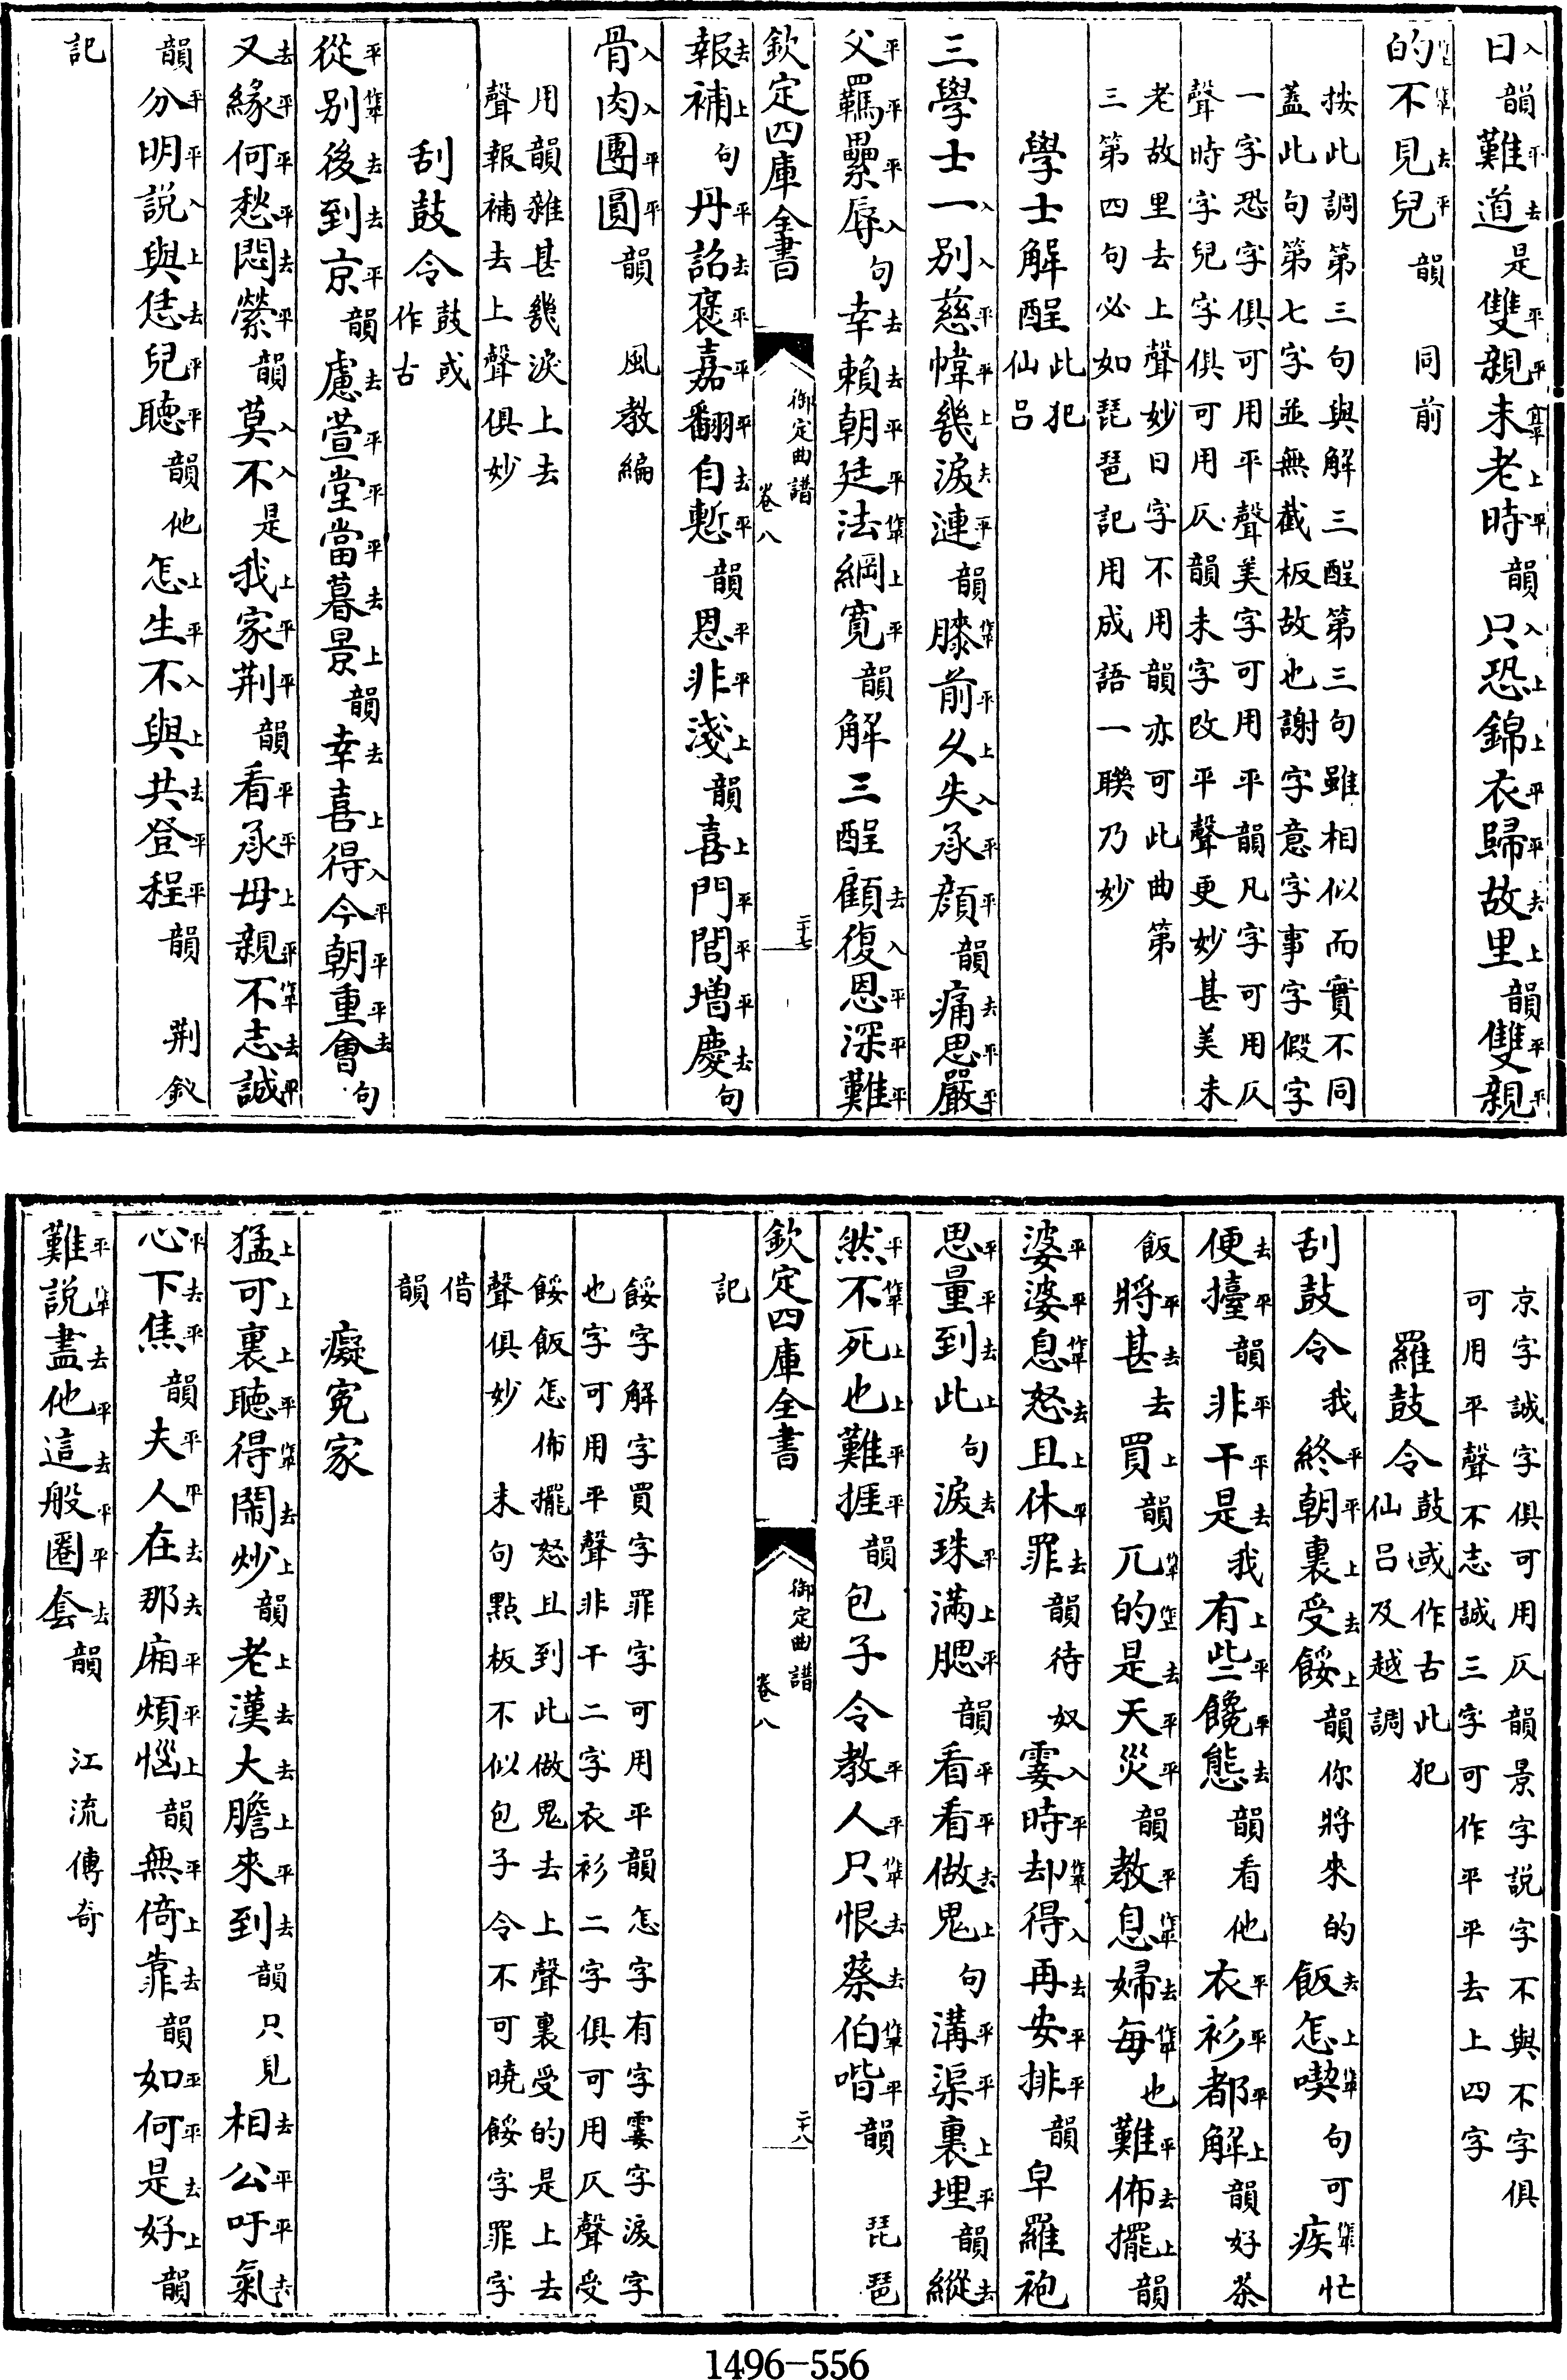 日韻難道是雙親未老時韻只恐錦衣歸故里韻雙親
的不見兒韻同前
按此調第三句與解三酲第三句雖相似而實不同
蓋此句第七字並無截板故也謝字意字事字假字
一字恐字俱可用平聲美字可用平韻凡字可用仄
聲時字兒字俱可用仄韻未字改平聲更妙甚美未
老故里去上聲妙日字不用韻亦可此曲第
三第四句必如琵琶記用成語一聯乃妙
學士解酲此犯
仙呂
三學士一別慈幃幾淚漣韻膝前久失承顔韻痛思嚴
父羈纍辱句幸賴朝廷法綱寛韻解三酲顧復恩深難
欽定四庫全書
御定曲譜
卷八
二十七
報補句丹詔褒嘉翻自慙韻恩非淺韻喜門閭增慶句
骨肉團圓韻風教編
用韻雜甚幾淚上去
聲報補去上聲俱妙
刮鼓令鼓或
作古
從别後到京韻慮萱堂當暮景韻幸喜得今朝重會句
又緣何愁悶縈韻莫不是我家荆韻看承母親不志誠
韻分明説與恁兒聽韻他怎生不與共登程韻荆釵
記
京字誠字俱可用仄韻景字説字不與不字俱
可用平聲不志誠三字可作平平去上四字
羅鼓令鼓或作古此犯
仙呂及越調
刮鼓令我終朝裏受餒韻你將來的飯怎喫句可疾忙
便擡韻非干是我有些饞態韻看他衣衫都解韻好茶
飯將甚去買韻兀的是天災韻教息婦每也難佈擺韻
婆婆息怒且休罪韻待奴霎時却得再安排韻皁羅袍
思量到此句淚珠滿腮韻看看做鬼句溝渠裏埋韻縱
然不死也難捱韻包子令教人只恨蔡伯喈韻琵琶
欽定四庫全書
御定曲譜
卷八
二十八
記
餒字解字買字罪字可用平韻怎字有字霎字淚字
也字可用平聲非干二字衣衫二字俱可用仄聲受
餒飯怎佈擺怒且到此做鬼去上聲裏受的是上去
聲俱妙末句點板不似包子令不可曉餒字罪字
借
韻
癡寃家
猛可裏聽得鬧炒韻老漢大膽來到韻只見相公吁氣
心下焦韻夫人在那廂煩惱韻無倚靠韻如何是好韻
難説盡他這般圈套韻江流傳奇
1496-556